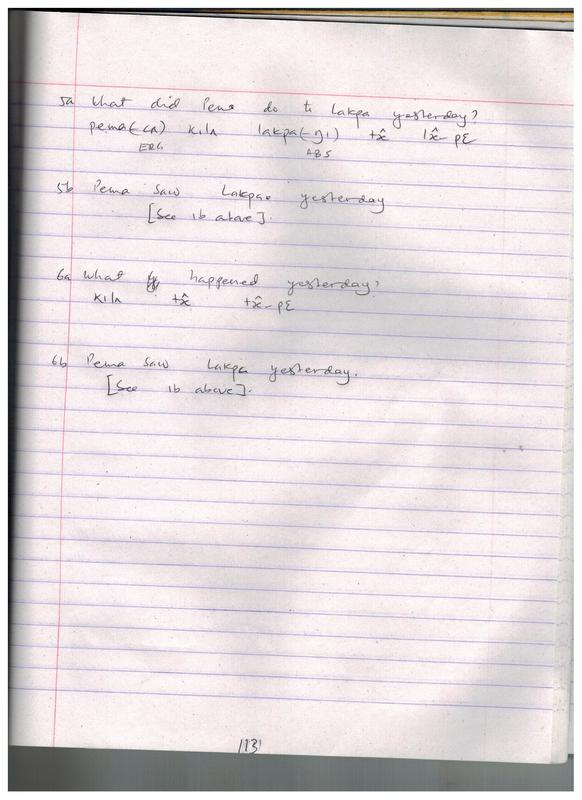 5a What did Pema do to Lakpa yesterday?
pema(-cʌ) kilʌ lakpa(-ŋi) tʌ̂ lʌ̂-pɛ
ERG ABS
5b Pema saw Lakpa yesterday
[See 1b above].
6a What happened yesterday?
kilʌ tʌ̂ tʌ̂-pɛ
6b Pema saw Lakpa yesterday.
[See 1b above].
113